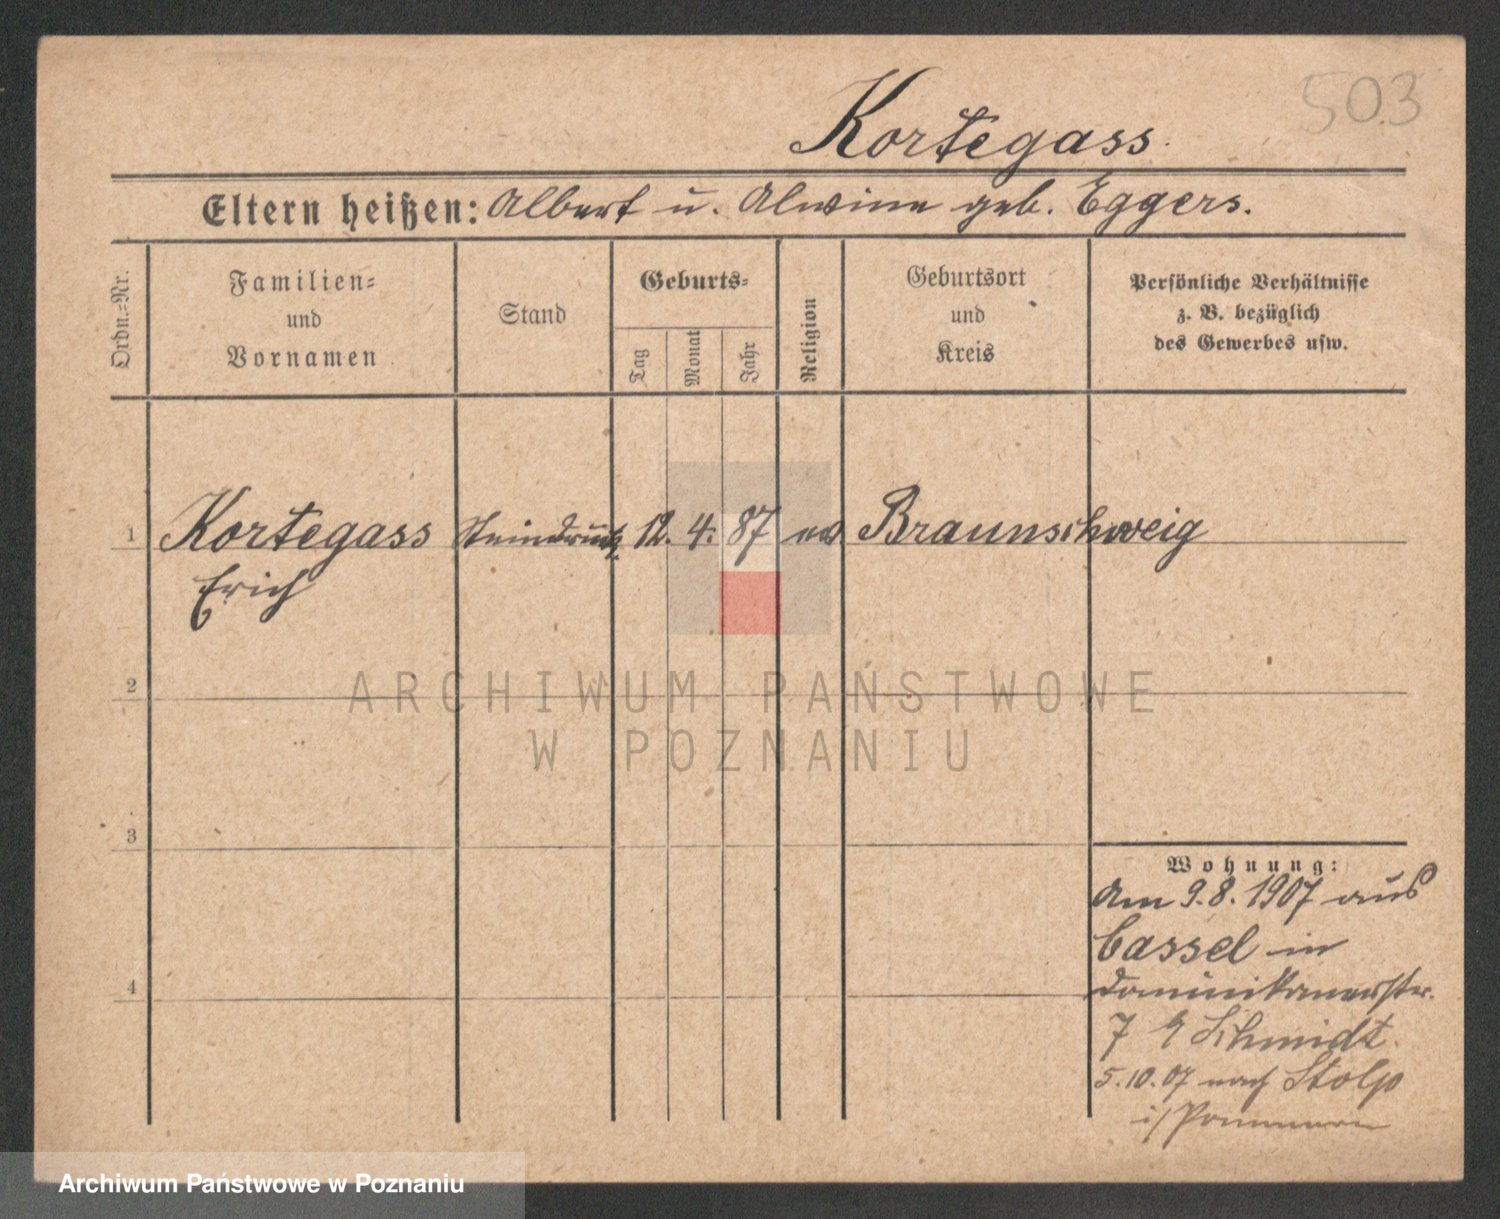 503
Kortegass.
Eltern heißen: Albert u. Alwine geb. Eggers.
Ordn.-Nr.
Familien- und Vornamen
Stand
Geburts-
Tag
Monat
Jahr
Religion
Geburtsort und Kreis
Persönliche Verhältnisse
z. B. bezüglich
des Gewerbes usw.
1 Kortegass Steindruck. 12. 4. 87 ev Braunschweig
Erich
2
3
4
Wohnung:
Am 9.8.1907 aus
Cassel in
Dominikanerstr.
7 b Schmidt.
5.10.07 nach Stolp
i/Pommern
ARCHIWUM PAŃSTWOWE
W POZNANIU
Archiwum Państwowe w Poznaniu